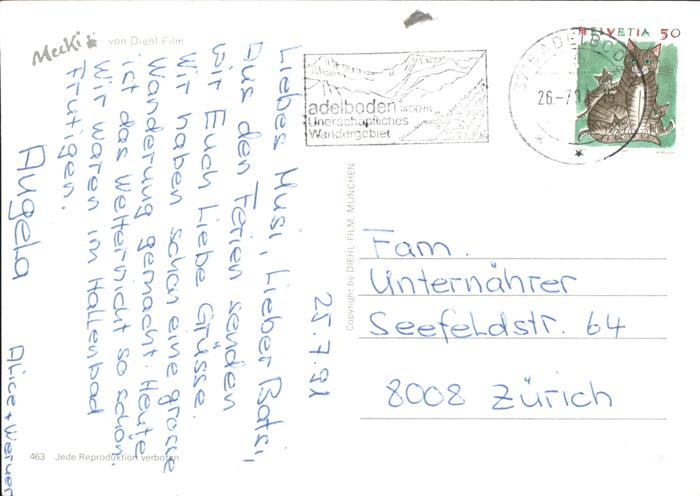 Mecki
von Diehl-Film
25.7.91
Liebes Musi, Lieber Batsi,
Aus den Ferien senden
wir Euch Liebe Grüsse.
Wir haben schon eine grosse
Wanderung gemacht. Heute
ist das Wetter nicht so schön.
Wir waren im Hallenbad
Frutigen.
Angela
Alice + Werner
463 Jede Reproduktion verboten
Copyright by DIEHL-FILM, MÜNCHEN
adelboden 1400m
Unerschöpfliches
Wandergebiet
ADELBODEN
26.-7.91
HELVETIA 50
Fam.
Unternährer
Seefeldstr. 64
8008 Zürich